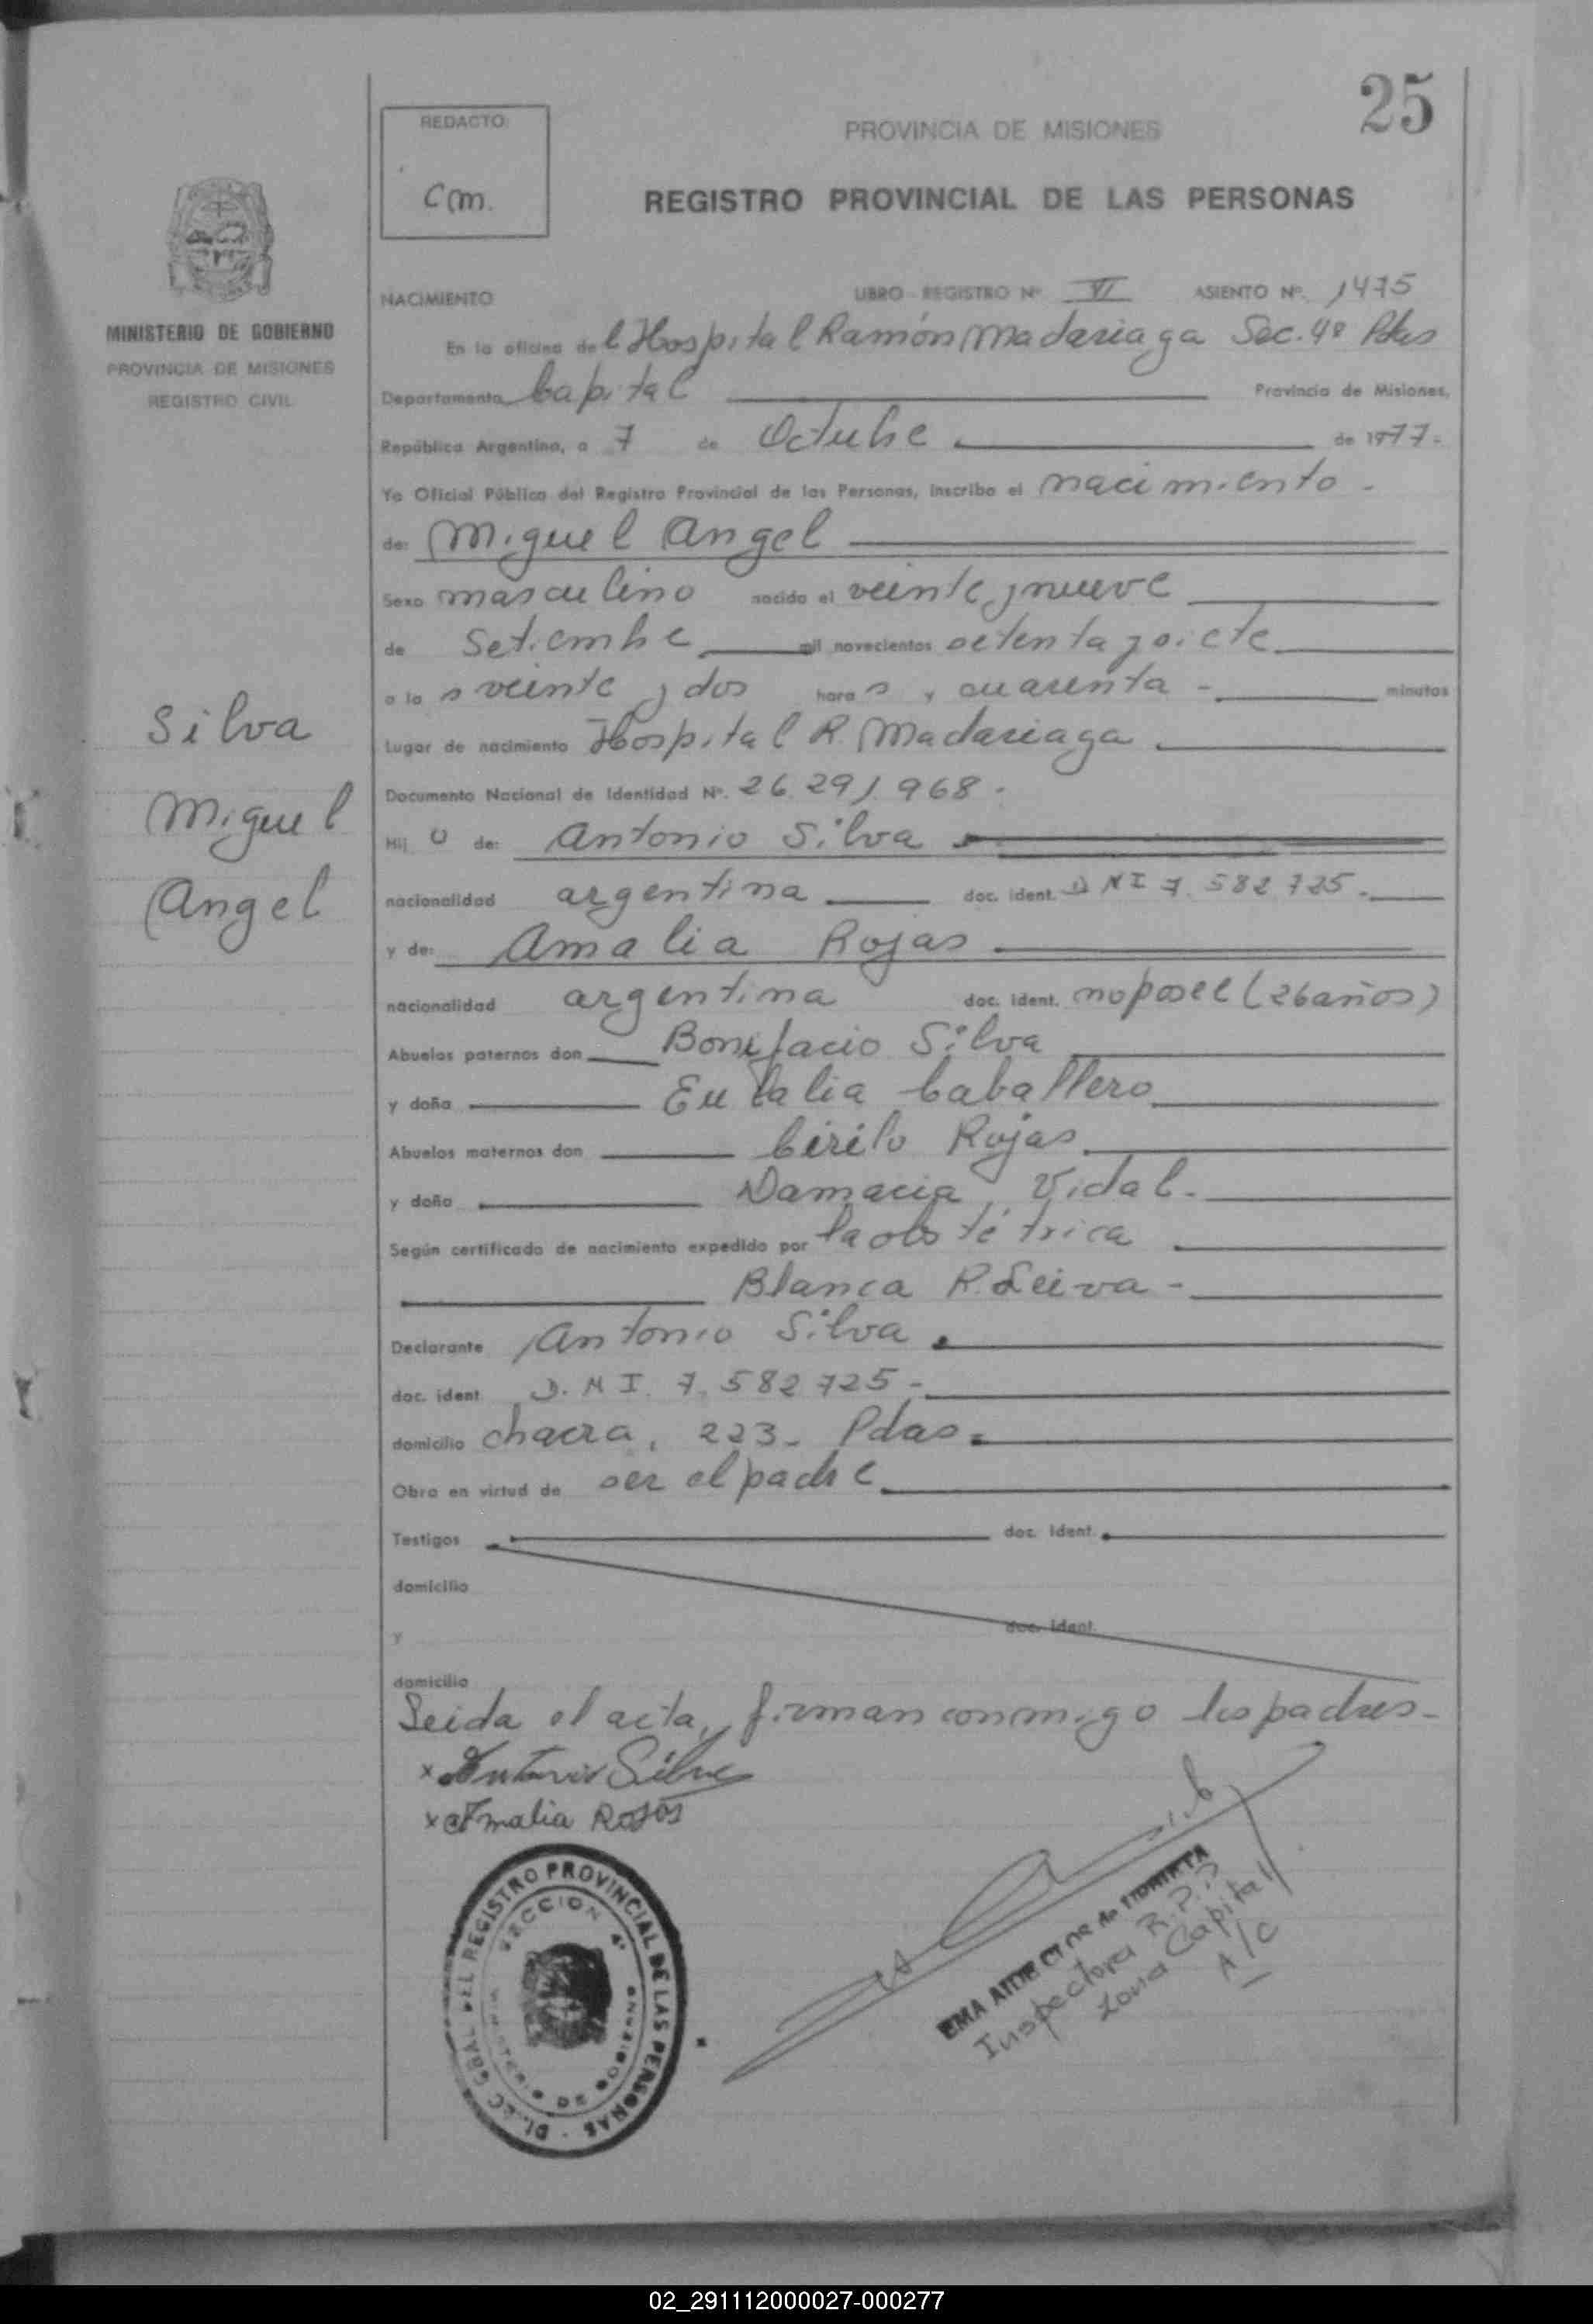 25
REDACTO:
Cm.
PROVINCIA DE MISIONES
REGISTRO PROVINCIAL DE LAS PERSONAS
MINISTERIO DE GOBIERNO
PROVINCIA DE MISIONES
REGISTRO CIVIL
Silva
Miguel
Angel
NACIMIENTO LIBRO REGISTRO Nº VI ASIENTO Nº. 1475
En la oficina del Hospital Ramón Madariaga Sec. 4º Pdas
Departamento Capital Provincia de Misiones,
República Argentina, a 7 de Octubre de 1977.
Yo Oficial Público del Registro Provincial de las Personas, inscribo el nacimiento.
de: Miguel Angel
Sexo masculino nacido el veinte y nueve
de Setiembre mil novecientos setenta y siete
a las veinte y dos horas y cuarenta minutos
Lugar de nacimiento Hospital R. Madariaga
Documento Nacional de Identidad Nº. 26.291.968.
Hijo de: Antonio Silva
nacionalidad argentina doc. ident. DNI 7.582.725.
y de: Amalia Rojas
nacionalidad argentina doc. ident. no posee (26 años)
Abuelos paternos don Bonifacio Silva
y doña Eulalia Caballero
Abuelos maternos don Cirilo Rojas
y doña Damacia Vidal.
Según certificado de nacimiento expedido por la obstétrica
Blanca R. Leiva -
Declarante Antonio Silva
doc. ident. D.N.I. 7.582 725 -
domicilio chacra, 223 - Pdas
Obra en virtud de ser el padre
Testigos doc. ident.
domicilio
y doc. ident.
domicilio
Leida el acta, firman conmigo los padres -
x Antonio Silva
x Amalia Rojas
DIREC GRAL DEL REGISTRO PROVINCIAL DE LAS PERSONAS
SECCION 4ª
MINISTERIO DE GOBIERNO
EMA AIDE CLOS de
Inspectora R.P.P
Zona Capital
A/C
02_291112000027-000277